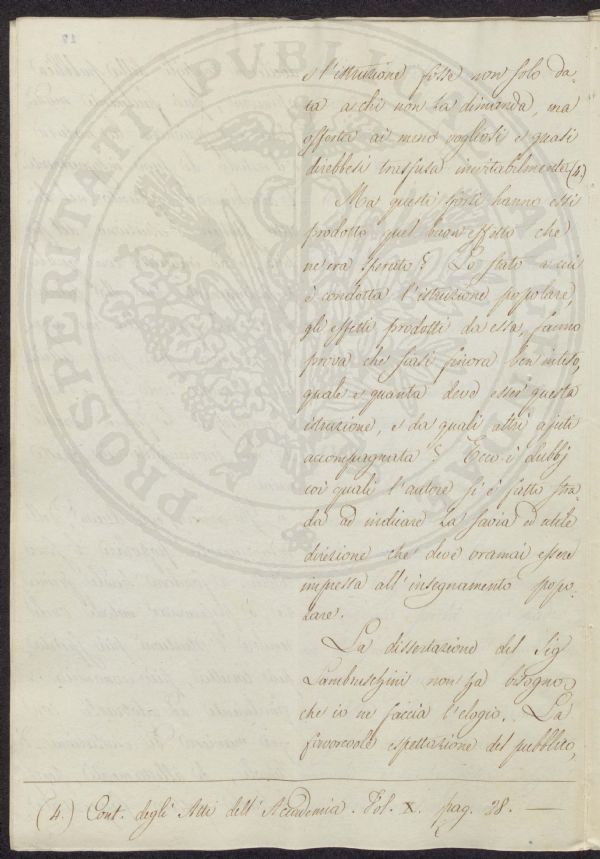 e l'istruzione fosse non solo da-
ta a chi non la dimanda, ma
offerta ai meno vogliosi e quasi
direbbesi trasfusa inevitabilmente (4.)
Ma questi sforzi hanno essi
prodotto quel buon effetto che
ne era sperato? Lo stato a cui
è condotta l'istruzione popolare,
gli effetti prodotti da essa, fanno
prova che siasi finora ben inteso,
quale e quanta deve esser questa
istruzione, e da quali altri ajuti
accompagnata? Ecco i dubbj
coi quali l'autore si è fatto stra-
da ad indicare la savia ed utile
direzione che deve oramai essere
impressa all'insegnamento popo-
lare.
La dissertazione del Sig
Lambruschini non ha bisogno
che io ne faccia l'elogio. La
favorevole espettazione del pubblico,
(4.) Cont. degli Atti dell'Accademia. Vol. X. pag. 28. —
PROSPERITATI PVBLICAE